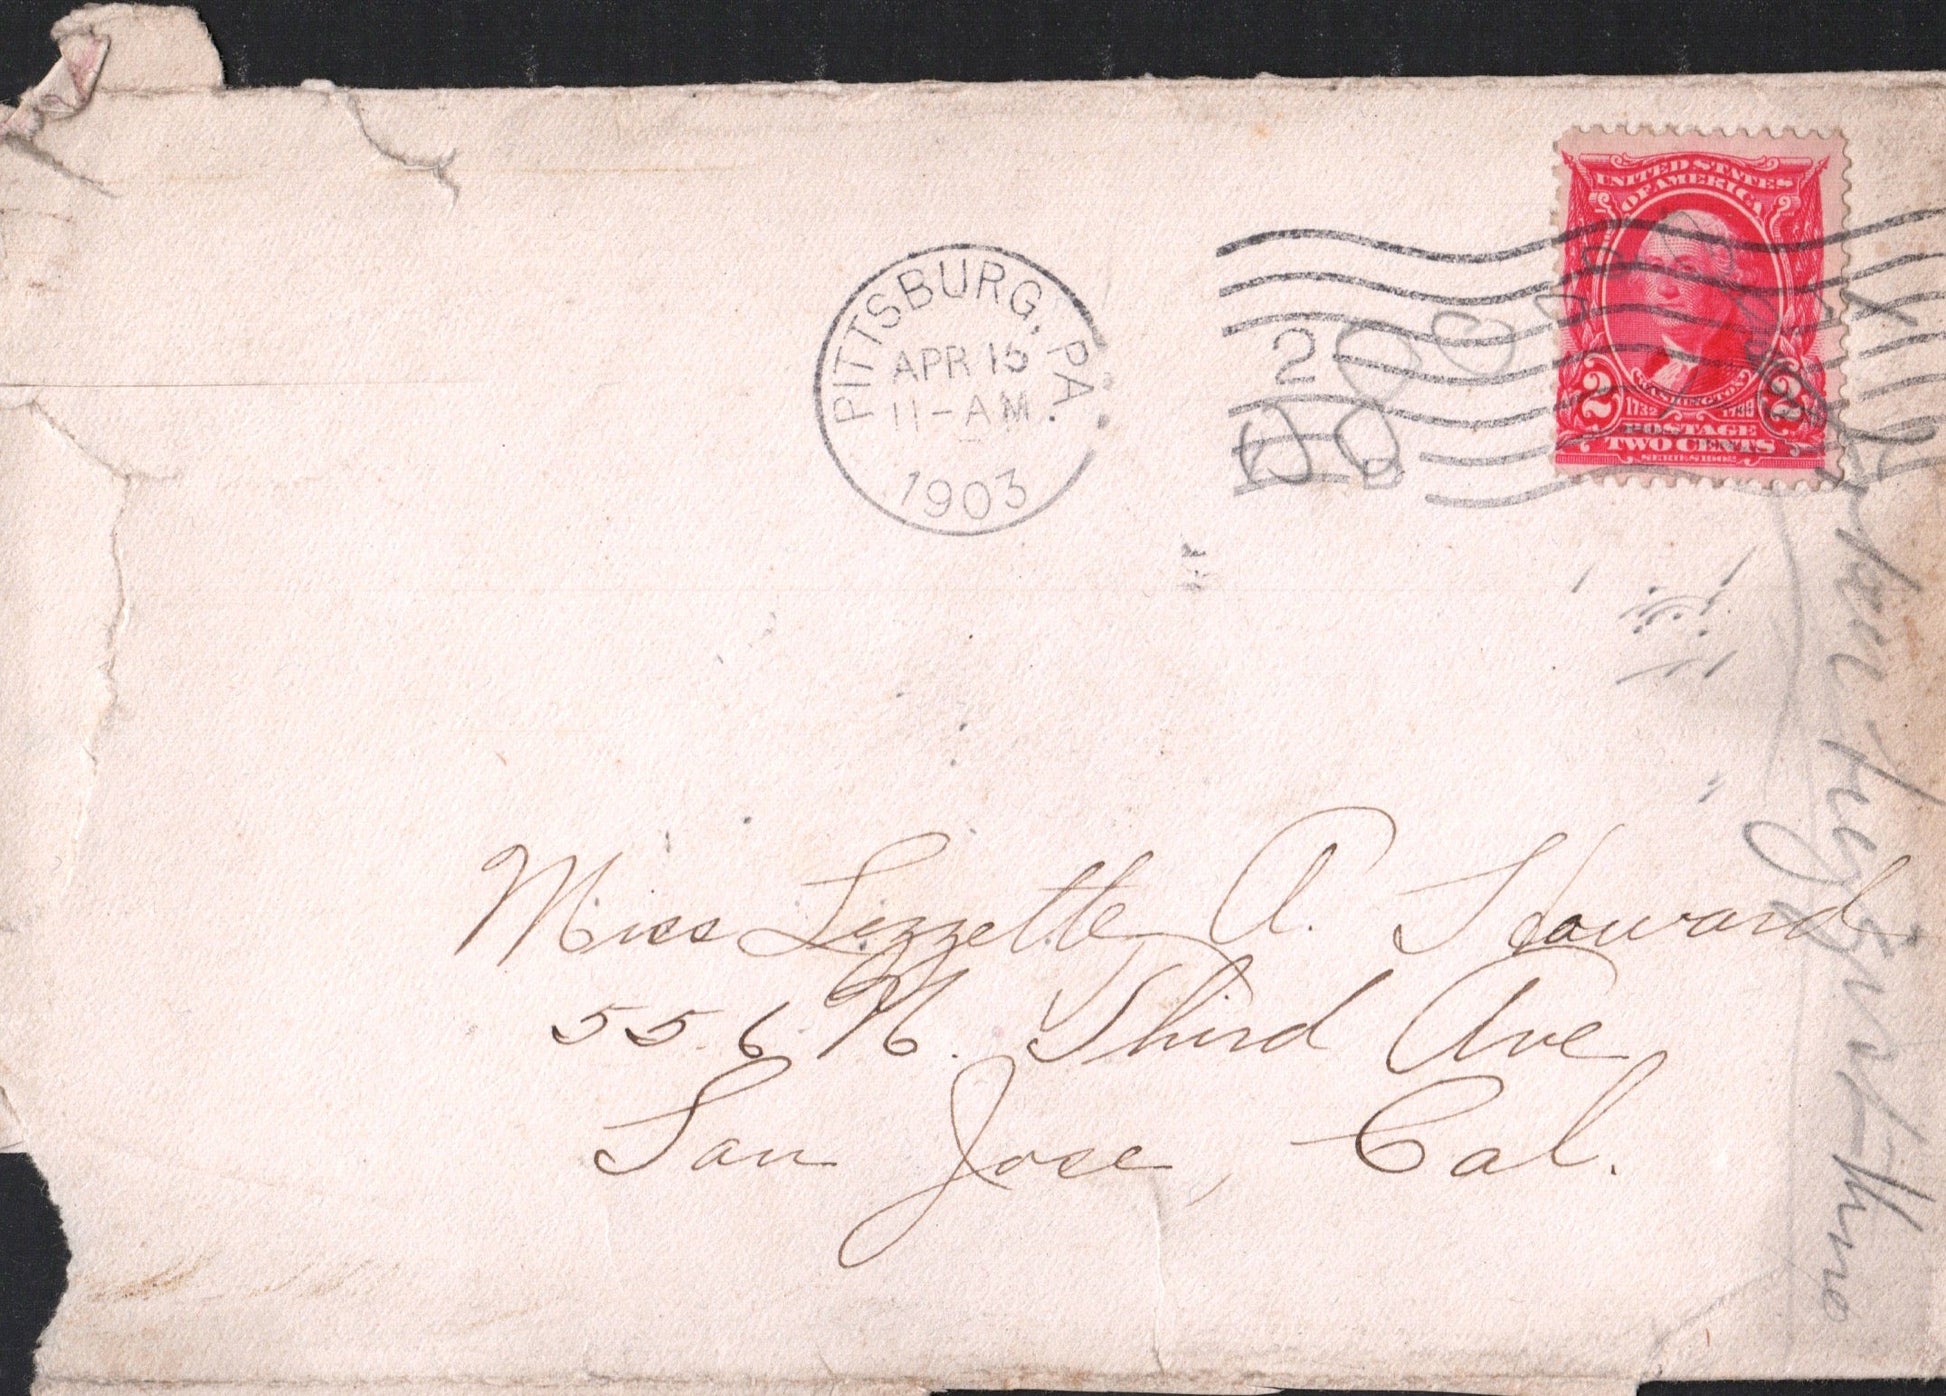 PITTSBURG, PA.
APR 15
11-AM
1903
2
D
UNITED STATES
OF AMERICA
WASHINGTON
2 2
1732 1799
POSTAGE
TWO CENTS
SERIES 1902
Miss Lizzette A. Howard
556 N. Third Ave
San Jose, Cal.